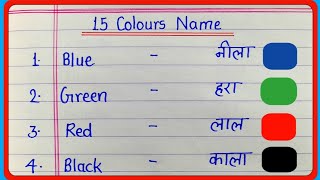 15 Colours Name
1. Blue - नीला
2. Green - हरा
3. Red - लाल
4. Black - काला